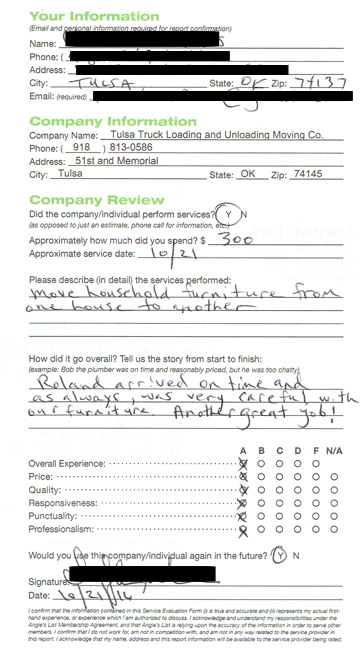 Your Information
(Email and personal information required for report confirmation)
Name:
Phone: (
Address:
City: TULSA, State: OK Zip: 74137
Email: (required)
Company Information
Company Name: Tulsa Truck Loading and Unloading Moving Co.
Phone: ( 918 ) 813-0586
Address: 51st and Memorial
City: Tulsa State: OK Zip: 74145
Company Review
Did the company/individual perform services? Y N
(as opposed to just an estimate, phone call for information, etc.)
Approximately how much did you spend? $ 300
Approximate service date: 10/21
Please describe (in detail) the services performed:
Move household furniture from
one house to another
How did it go overall? Tell us the story from start to finish:
(example: Bob the plumber was on time and reasonably priced, but he was too chatty)
Roland arrived on time and
as always, was very careful with
our furniture. Another great job!
A B C D F N/A
Overall Experience:
Price:
Quality:
Responsiveness:
Punctuality:
Professionalism:
Would you use this company/individual again in the future? Y N
Signature
Date: 10/21/16
I confirm that the information contained in this Service Evaluation Form (i) is true and accurate and (ii) represents my actual first-
hand experience, or experience which I am authorized to discuss. I acknowledge and understand my responsibilities under the
Angie's List Membership Agreement, and that Angie's List is relying upon the accuracy of the information in order to serve other
members. I confirm that I do not work for, am not in competition with, and am not in any way related to the service provider in
this report. I acknowledge that my name, address and this report information will be available to the service provider being rated.